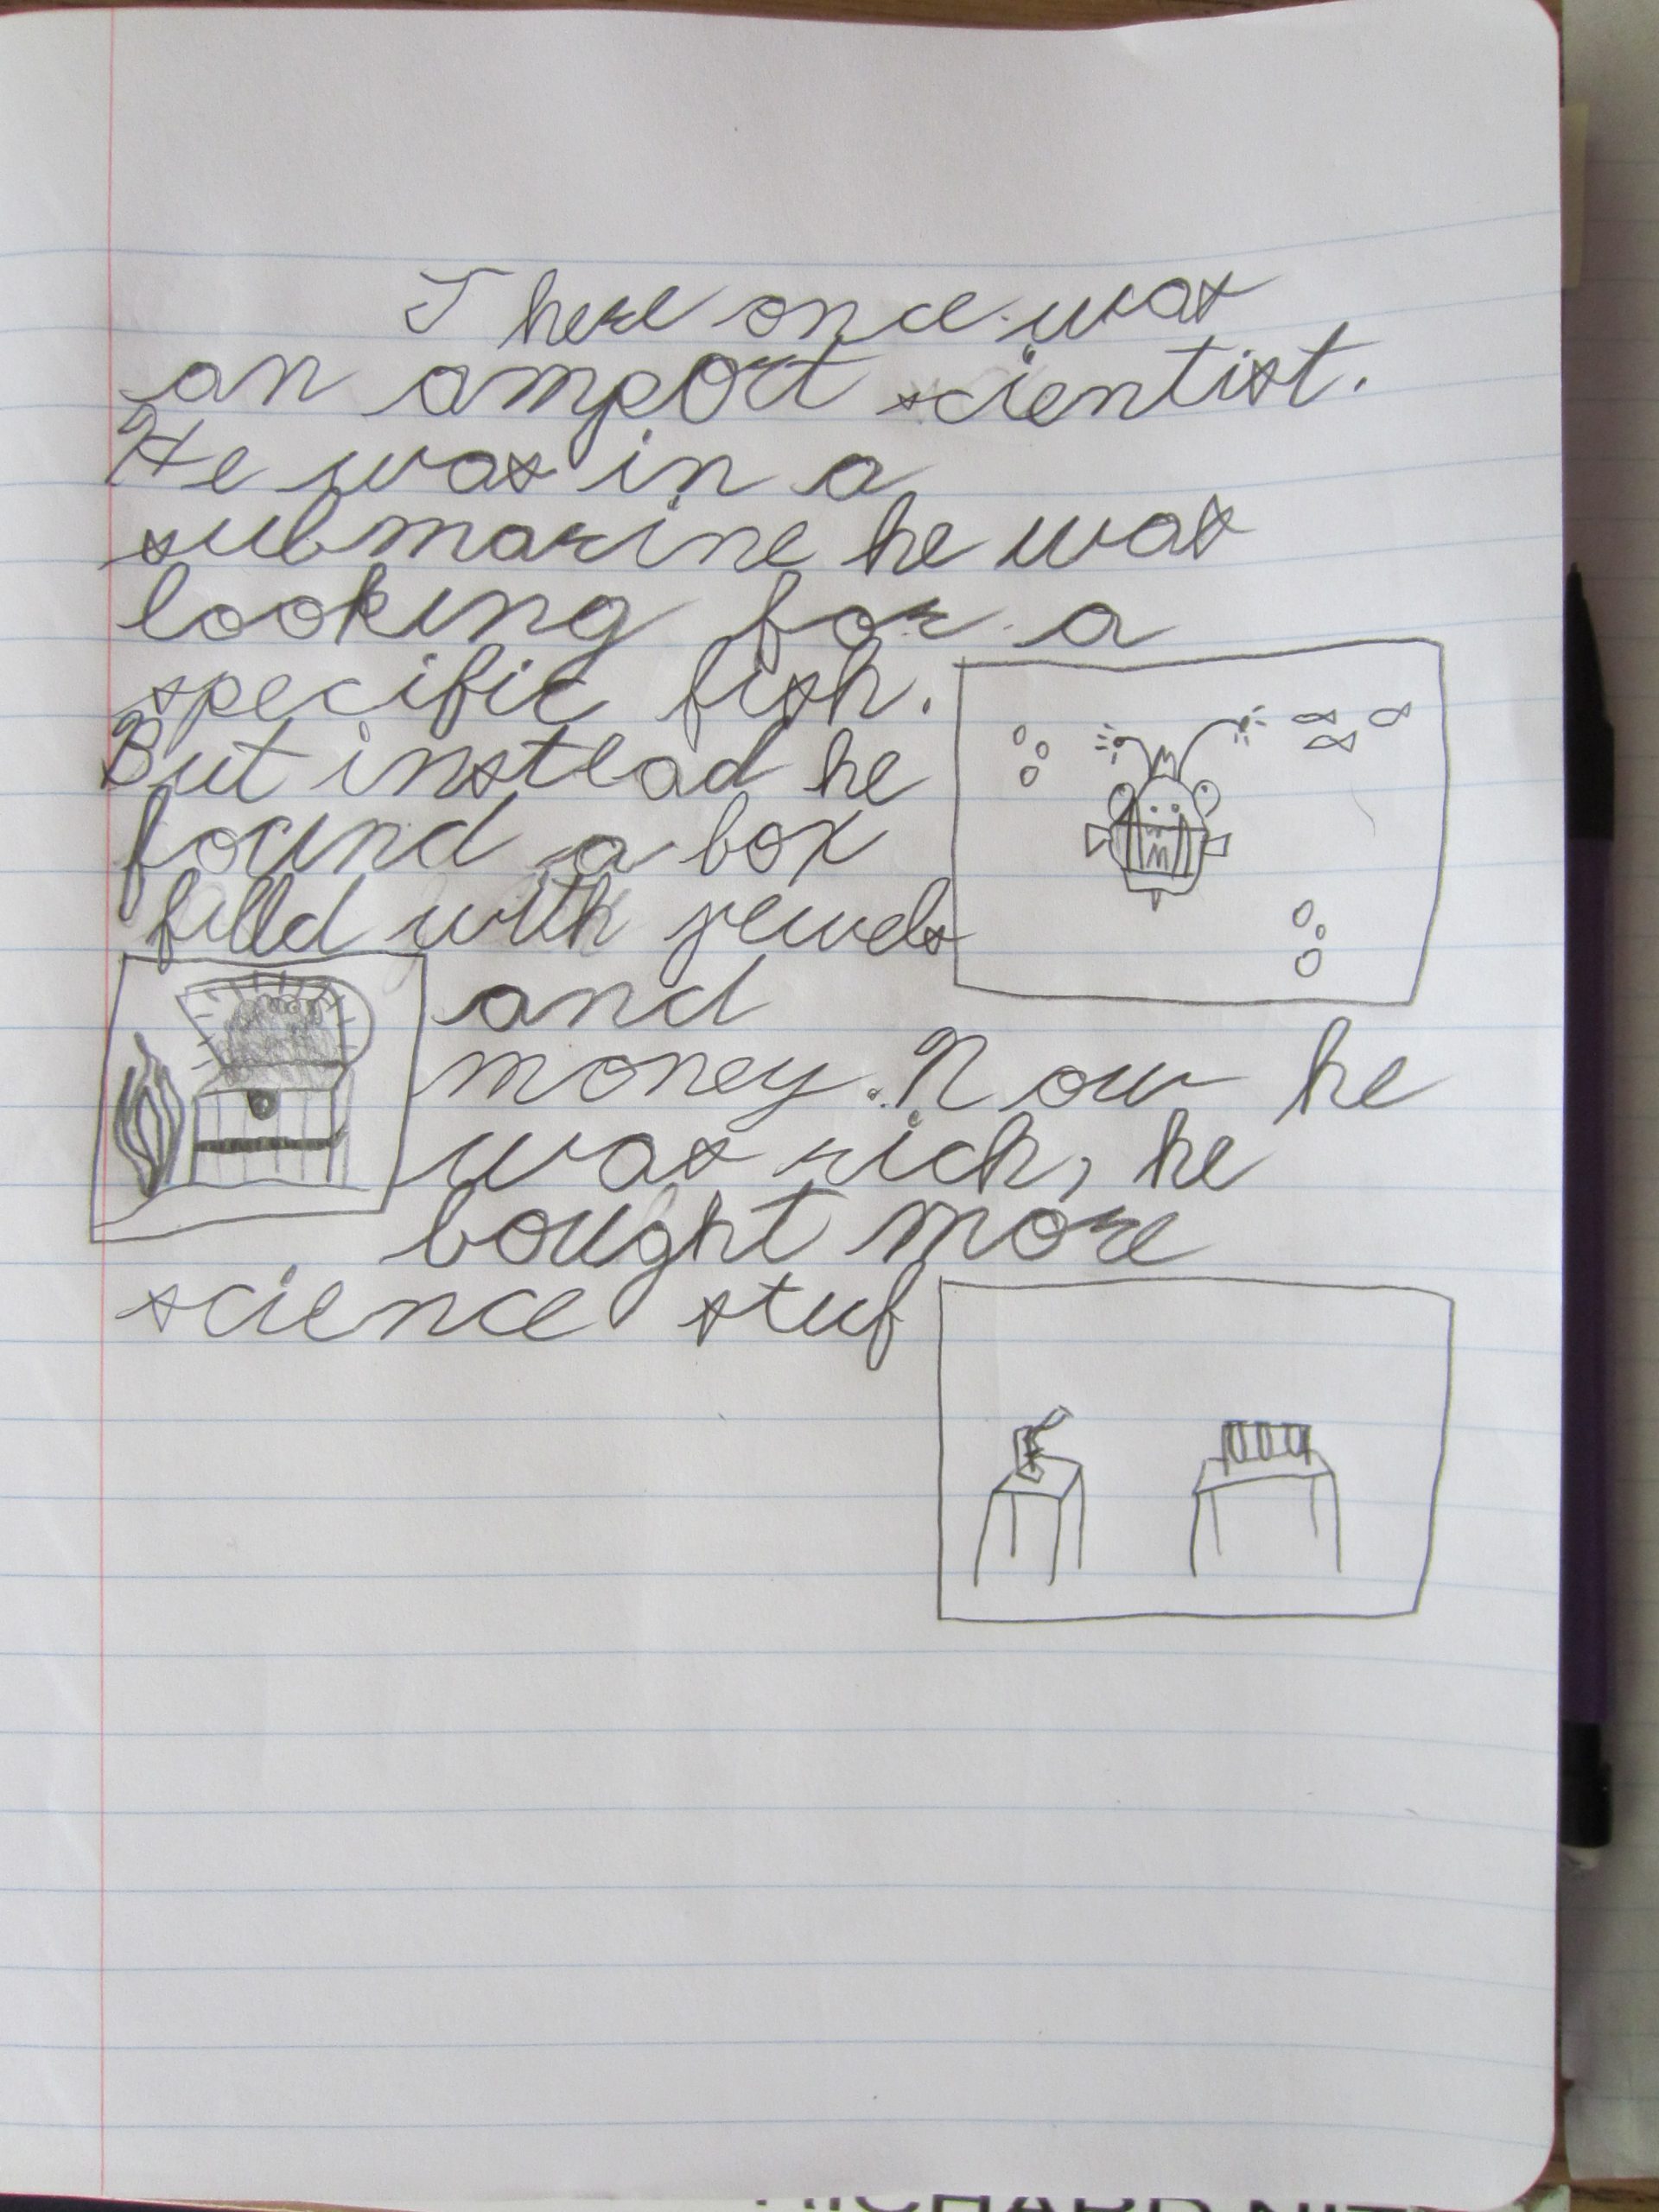 There once was
an amport scientist.
He was in a
submarine he was
looking for a
specific fish.
But instead he
found a box
filld with jewels
and
money. Now he
was rich, he
bought more
science stuf